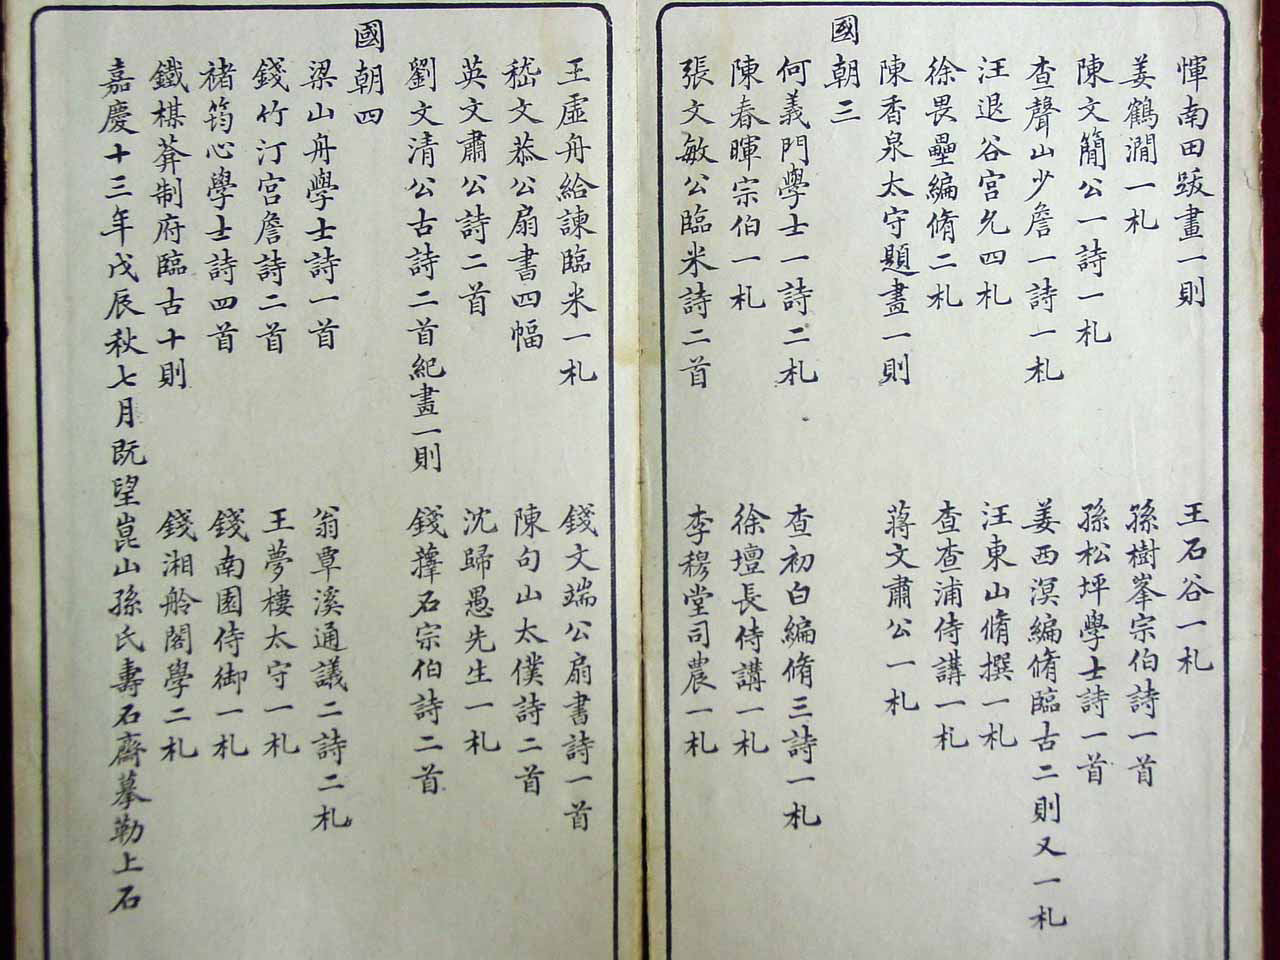 惲南田跋畫一則　王石谷一札
姜鶴澗一札　孫樹峯宗伯詩一首
陳文簡公一詩一札　孫松坪學士詩一首
查聲山少詹一詩一札　姜西溟編脩臨古二則又一札
汪退谷宮允四札　汪東山脩撰一札
徐畏壘編脩二札　查查浦侍講一札
陳香泉太守題畫一則　蔣文肅公一札
國朝三
何義門學士一詩二札　查初白編脩三詩一札
陳春暉宗伯一札　徐壇長侍講一札
張文敏公臨米詩二首　李穆堂司農一札
王虛舟給諫臨米一札　錢文端公扇書詩一首
嵇文恭公扇書四幅　陳句山太僕詩二首
英文肅公詩二首　沈歸愚先生一札
劉文清公古詩二首紀畫一則　錢蘀石宗伯詩二首
國朝四
梁山舟學士詩一首　翁覃溪通議二詩二札
錢竹汀宮詹詩二首　王夢樓太守一札
褚筠心學士詩四首　錢南園侍御一札
鐵楳菴制府臨古十則　錢湘舲閣學二札
嘉慶十三年戊辰秋七月既望崑山孫氏壽石齋摹勒上石